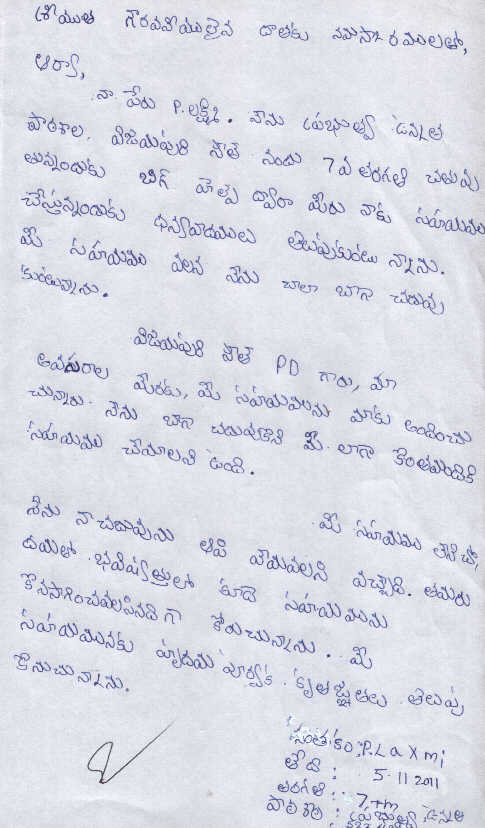 శ్రీయుత గౌరవనీయులైన దాతకు నమస్కారములతో,
ఆర్యా,
నా పేరు P.లక్ష్మి. నేను ప్రభుత్వ ఉన్నత
పాఠశాల, విజయపురి సౌత్ నందు 7వ తరగతి చదువు
తున్నందుకు బిగ్ హెల్ప్ ద్వారా మీరు నాకు సహాయము
చేస్తున్నందుకు ధన్యవాదములు తెలుపుకుంటు న్నాను.
మీ సహాయము వలన నేను చాలా బాగా చదువు
కుంటున్నాను.
విజయపురి సౌత్ PD గారు, మా
అవసరాల మేరకు, మీ సహాయమును మాకు అందించు
చున్నారు. నేను బాగా చదువుకొని మీ లాగా కొంతమందికి
సహాయము చేయాలని ఉంది.
మీ సహాయము లేకిచో,
నేను నా చదువును ఆపి వేయవలసి వచ్చేది. తమరు
దయతో భవిష్యత్తులో కూడా సహాయమును
కొనసాగించవలసినదిగా కోరుచున్నాను. మీ
సహాయమునకు హృదయ పూర్వక కృతజ్ఞతలు తెలుపు
కొనుచున్నాను.
సంతకం: P.Laxmi
తేది : 5-11 2011
తరగతి : 7th
పాఠశాల : ప్రభుత్వ ఉన్నత